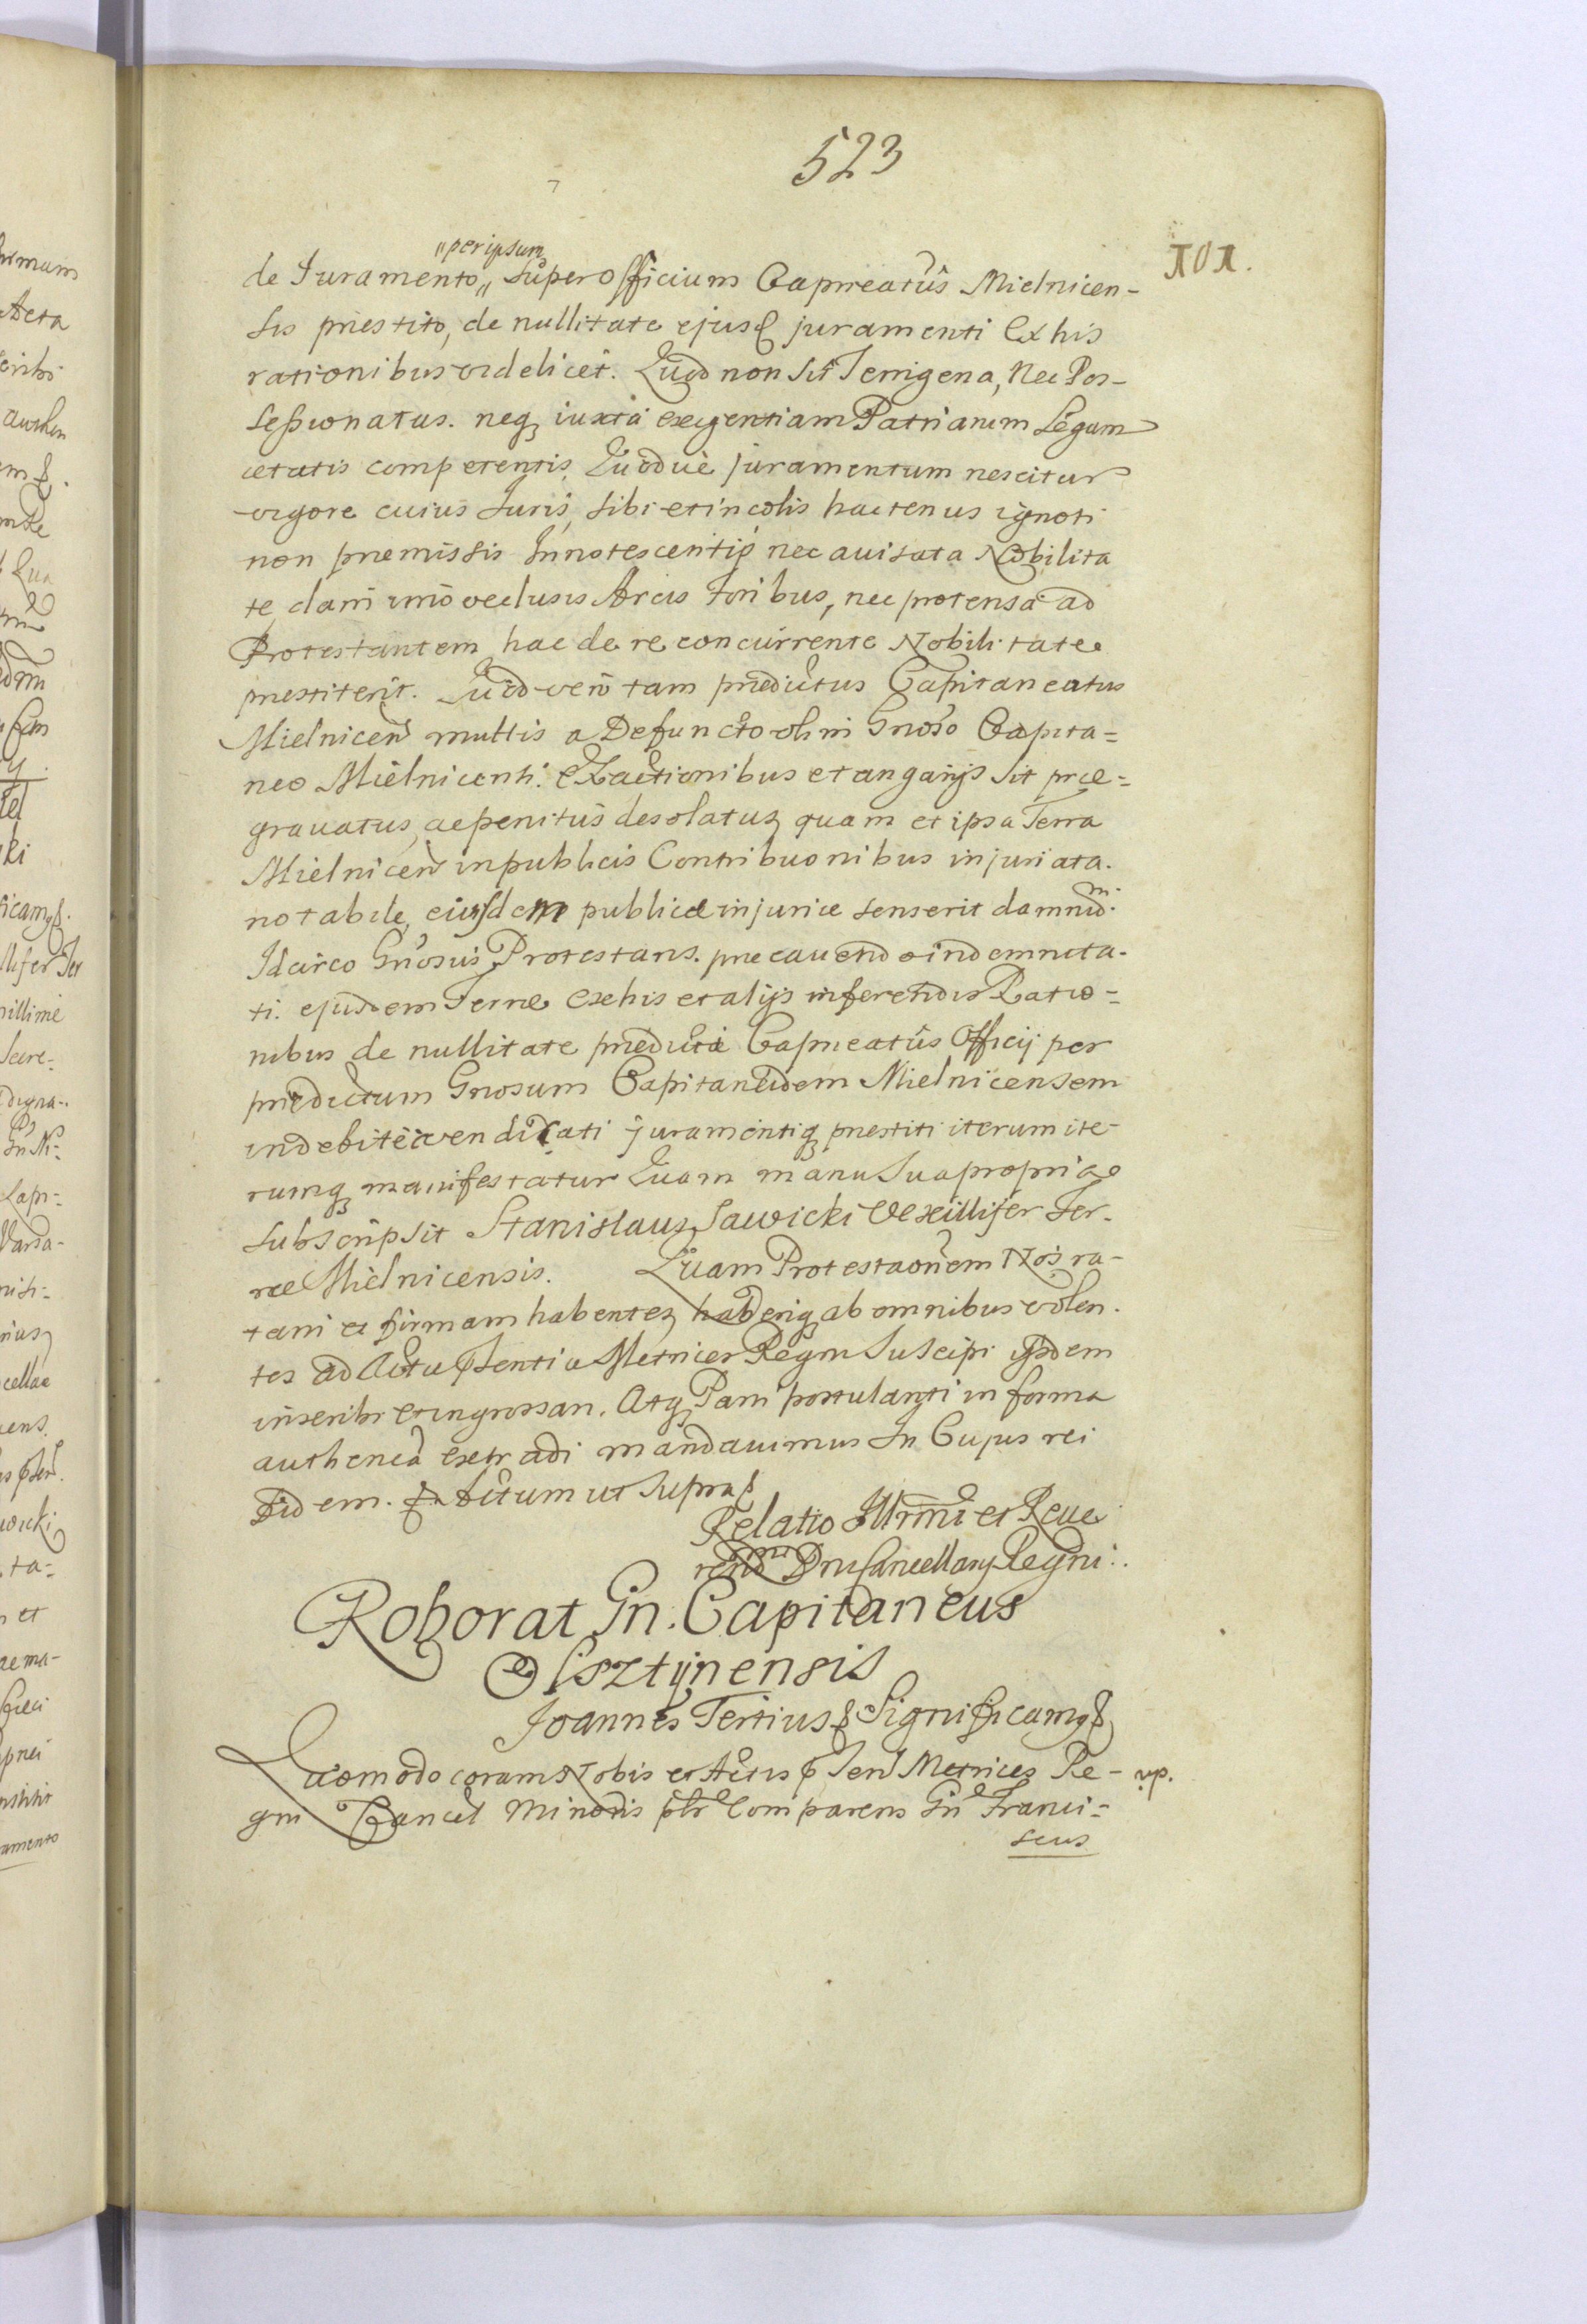 523
пол.
"per ipsum
de Juramento" super officium Capneatûs Mielnicen-
sis priestito, de nullitate ejusd juramenti Ex his
rationibus videlicet. Quod non sit Terrigena, Nec Pos-
sessionatus. neq iuxta exigentiam Patriarum Legum
aetatis competentis, Quodue juramentum nescitur
vigore cuius Juris, sibi et incolis hactenus ignoti
non premissis Innotescentijs nec auisata Nobilita
te clam imo occlusis Arcis foribus, nec protensa ad
Protestantem hac de re concurrente Nobilitate
prestiterit. Quod vero tam prîedictus Capitaneatus
Mielnicen multis a Defuncto olim Gnoso Capita=
neo Mielnicensi. Exactionibus et angarijs sit prae=
grauatus, ac penitus desolatus quam et ipsa Terra
Mielnicen in publicis Contribuonibus injuriata.
notabile, eiusdem publicae injuriae senserit damnum.
Idcirco Gnosus Protestans. precauendo indemnita-
ti. ejusdem Terrae Ex his et alijs inferendis Ratio=
nibus de nullitate predicti Capneatûs Officij per
prîedictum Gnosum Capitaneidem Mielnicensem
indebite vendicati juramentiq prestiti iterum ite-
rumq manifestatur Quam manu sua propria
subscripsit Stanislaus Sawicki Vexillifer Ter-
rae Mielnicensis. Quam Protestaonem Nos ra-
tam et firmam habentes haberiq ab omnibus volen-
tes ad Acta psentia Metrices Regni Suscipi ijsdem
inseribi et ingrossari. Atq Parti postulanti in forma
authenca extradi mandauimus In Cujus rei
fidem. Datum ut supra
Relatio Illrmi et Reue
rendmi Dni Cancellarij Regni.
Roborat Gn. Capitaneus
Olsztynensis
Joannes Tertius Significamq
Quomodo coram Nobis et Actis psen Metrices Re-
up.
gni Cancel Minoris pltr Comparens Gn Franci=
scus